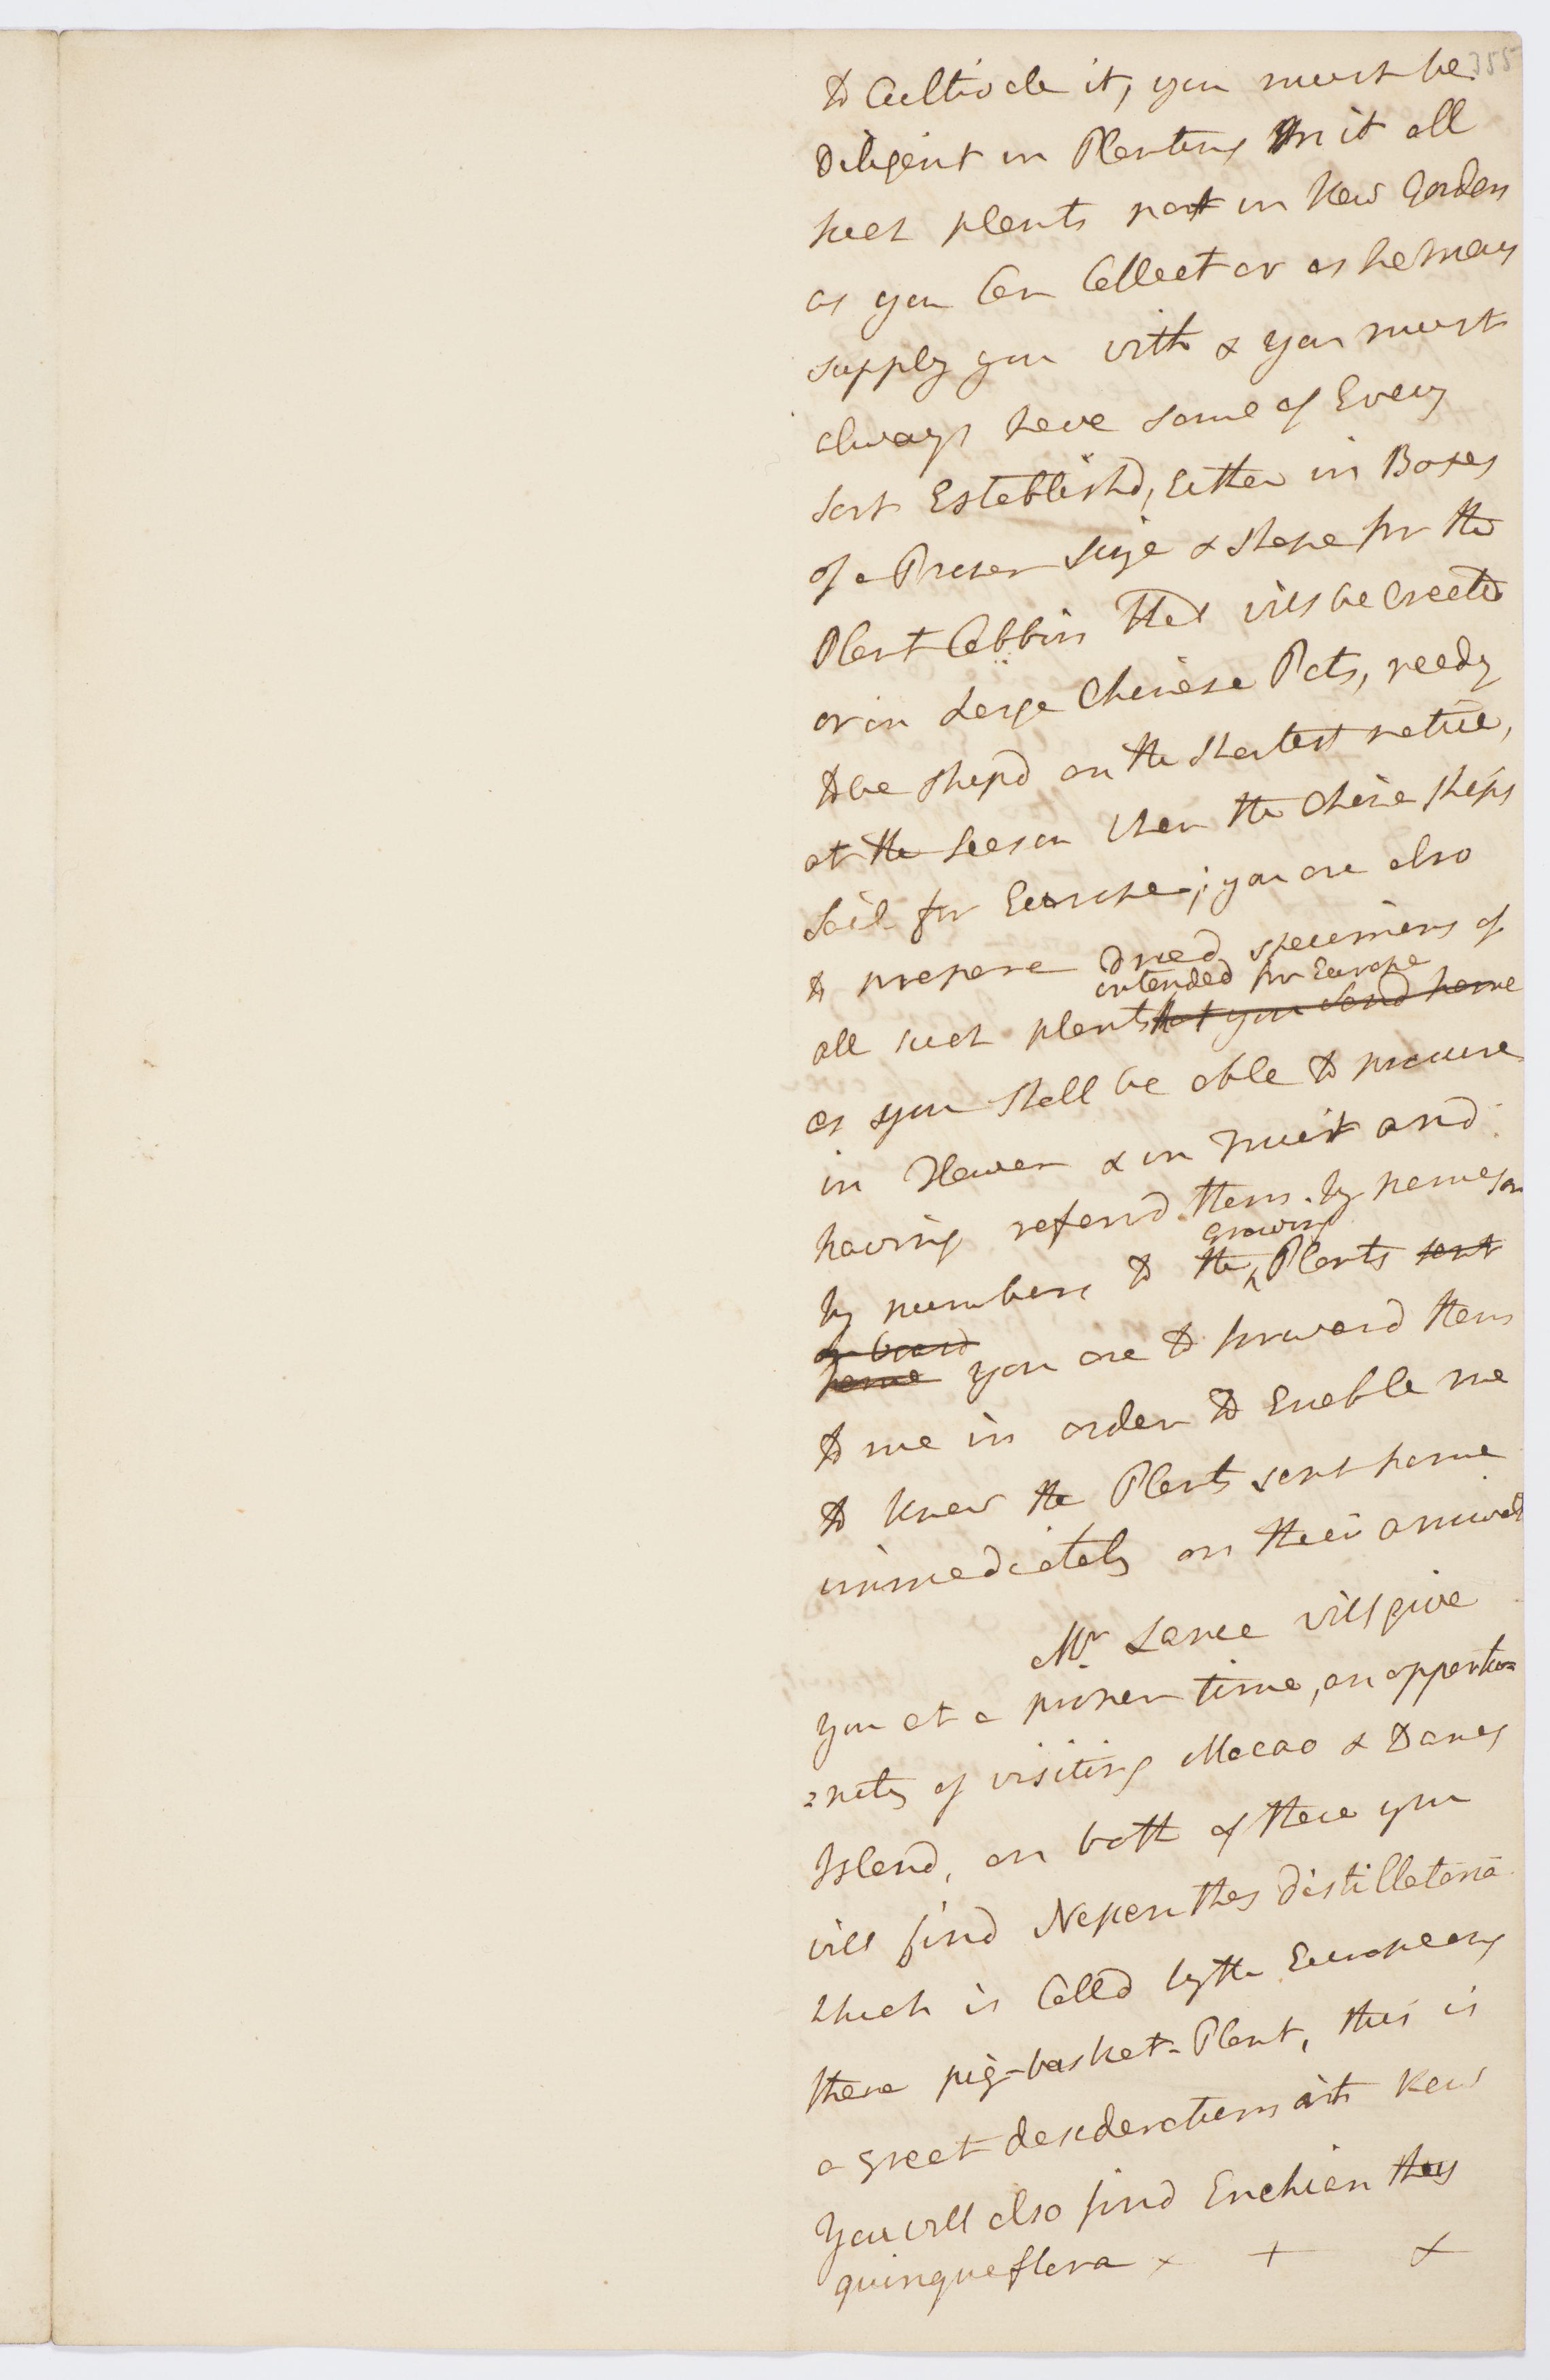 355
to Cultivate it, you must be
Diligent in Planting in it all
such plants not in Kew Garden
as you Can Collect or as he may
supply you with & you must
always have some of Every
sort Establishd, Either in Boxes
of a Proper Size & shape for the
Plant Cabbin that will be Erected
or in Large Chinese Pots, ready
to be shipd on the shortest notice,
at the Season when the China ships
Sail for Europe; you are also
to prepare Dried specimens of
intended for Europe
all such plants that you send home
as you shall be able to procure
in Flower & in Fruit and
having referrd them by names or
growing
by numbers to the Plants sent
on board
home you are to forward them
to me in order to Enable me
to know the Plants sent home
immediately on their arrival
Mr Lance will give
you at a proper time, an opportu=
=nity of visiting Macao & Danes
Island, on both of these you
will find Nepenthes distillatoria
which is Calld by the Europeans
there pig-basket-Plant, this is
a great desideratum at Kew
You will also find Enkianthus
quinqueflora × + ×